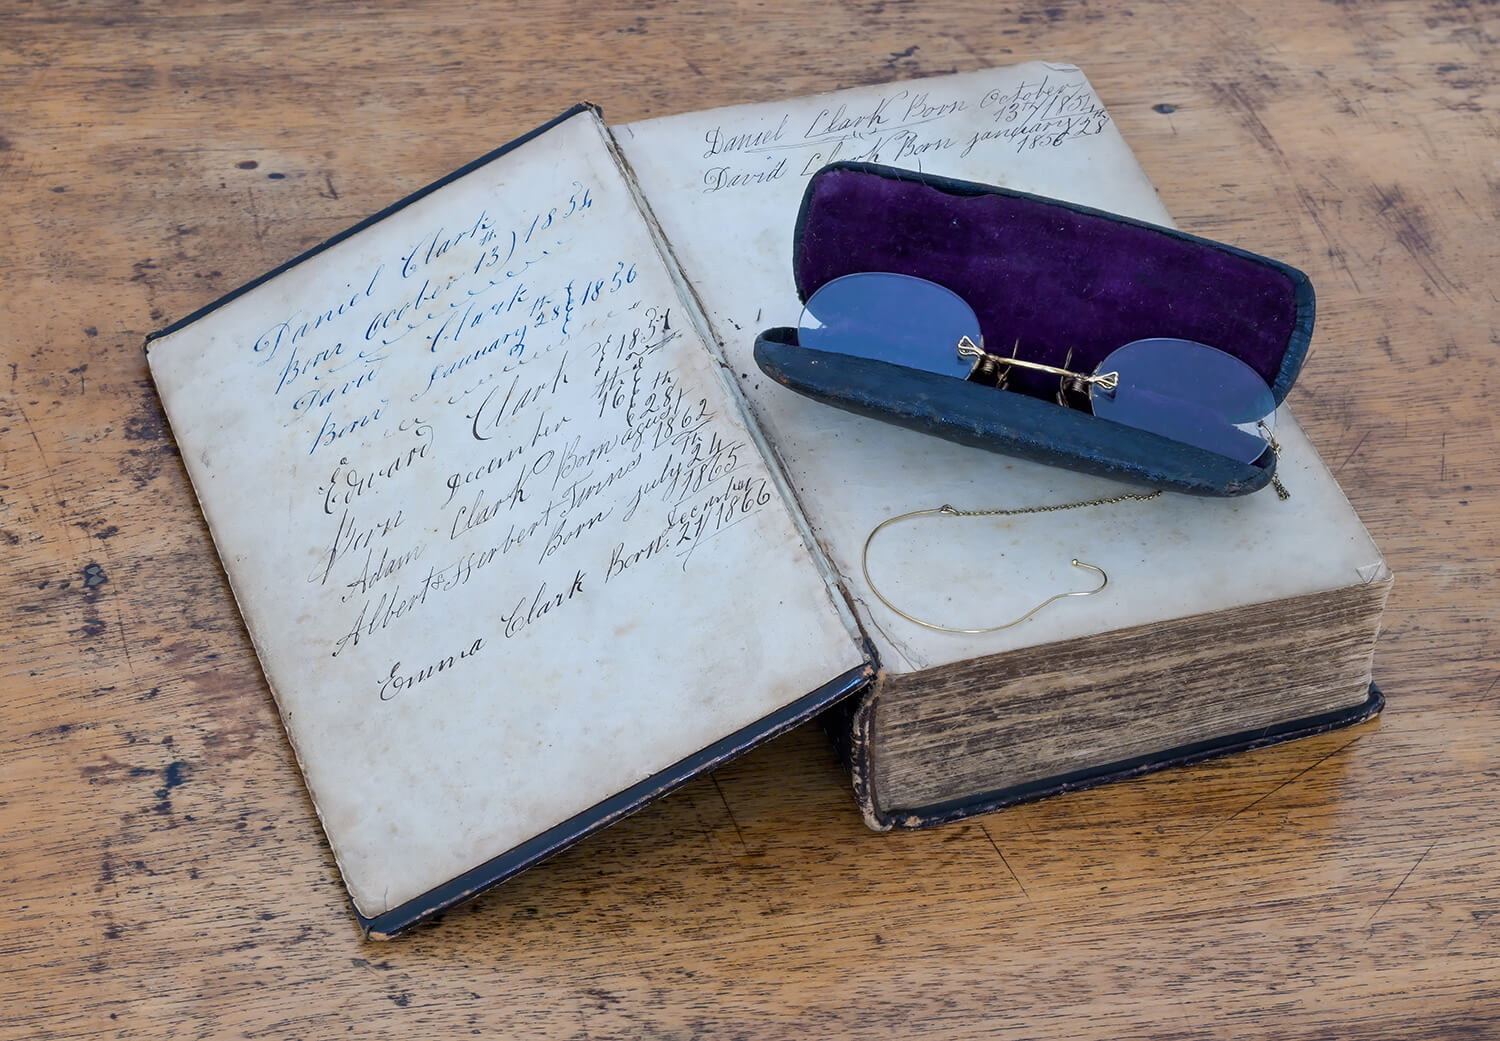 Daniel Clark
Born Ocober 13th) 1854
David Clark
Born January 28th 1856
Edward Clark 1857
Born December 16th
Adam Clark Born agust 28th
1862
Albert & Herbert Twins
Born july 24th
1865
Emma Clark Born. December
21 / 1866
Daniel Clark Born October
13th / 1854
David Clark Born januarary 28th
1856